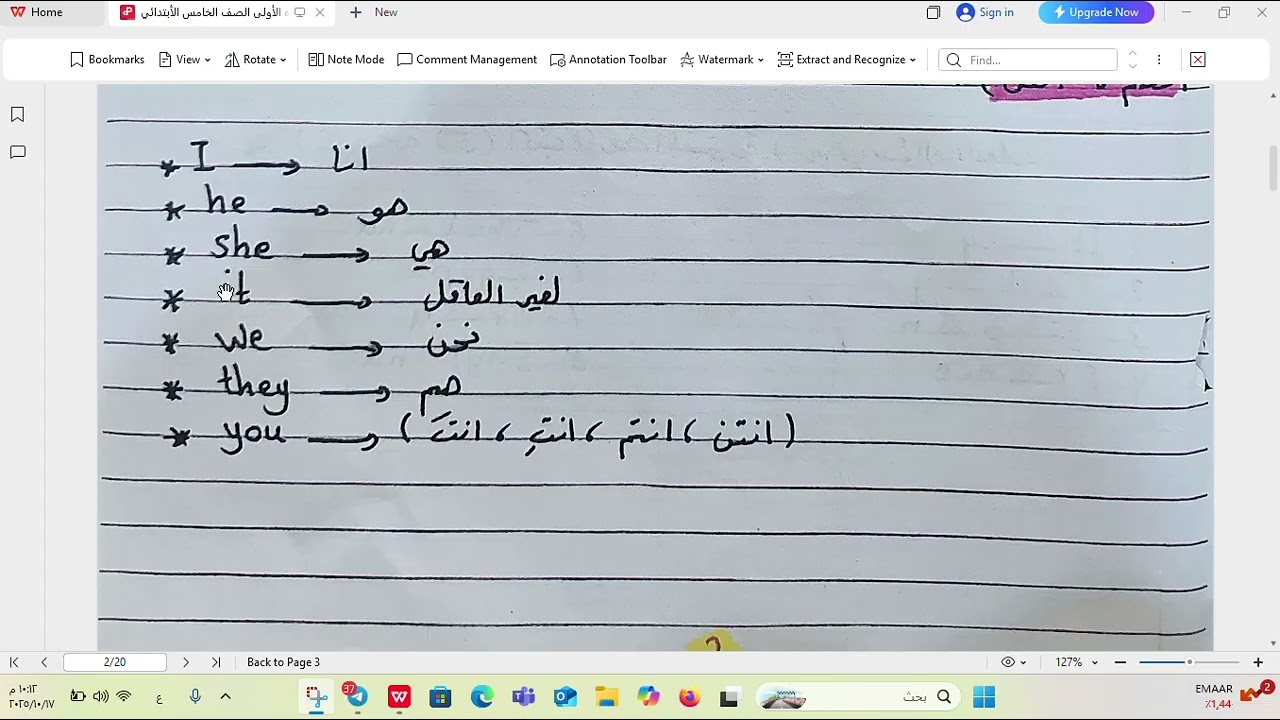 Home
الأولى الصف الخامس الأبتدائي
New
Sign in
Upgrade Now
Bookmarks
View
Rotate
Note Mode
Comment Management
Annotation Toolbar
Watermark
Extract and Recognize
Find...
* I → انا
* he → هو
* she → هي
* it → لغير العاقل
* we → نحن
* they → هم
* you → (انتَ ، انتِ ، انتم ، انتن)
2/20
Back to Page 3
127%
١٠:١٣ م
ع
37
بحث
EMAAR
٪1,44
2